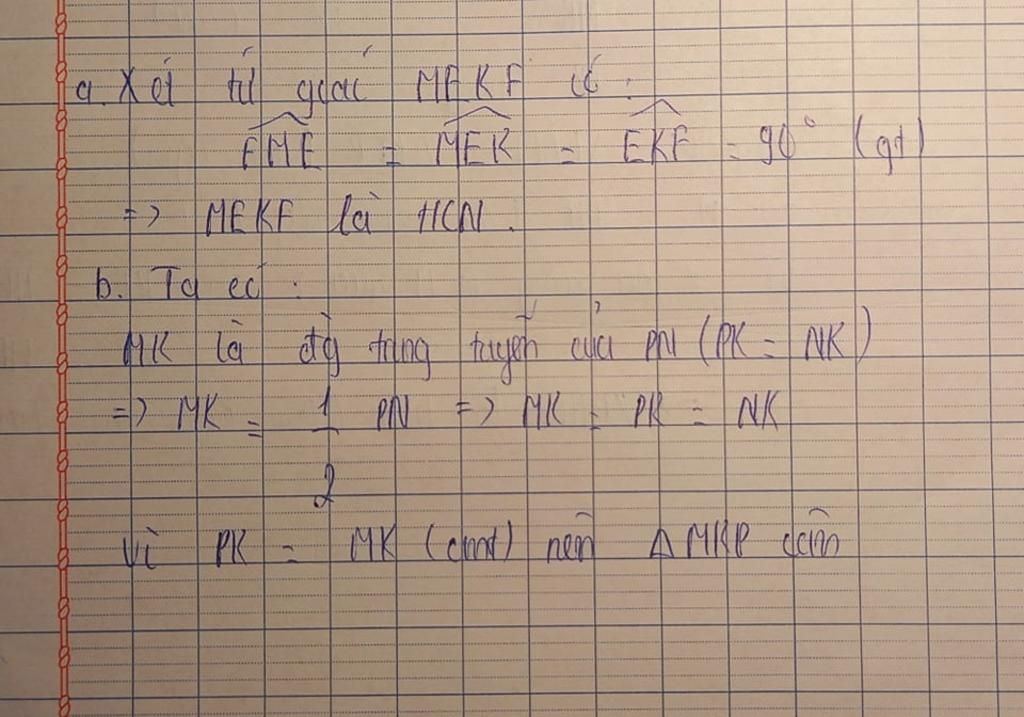 a. Xét tứ giác MEKF có:
FME = MEK = EKF = 90° (gt)
=> MEKF là HCN.
b. Ta có:
MK là đg trung tuyến của PN (PK = NK)
=> MK = 1/2 PN => MK = PK = NK
Vì PK = MK (cmt) nên Δ MKP cân